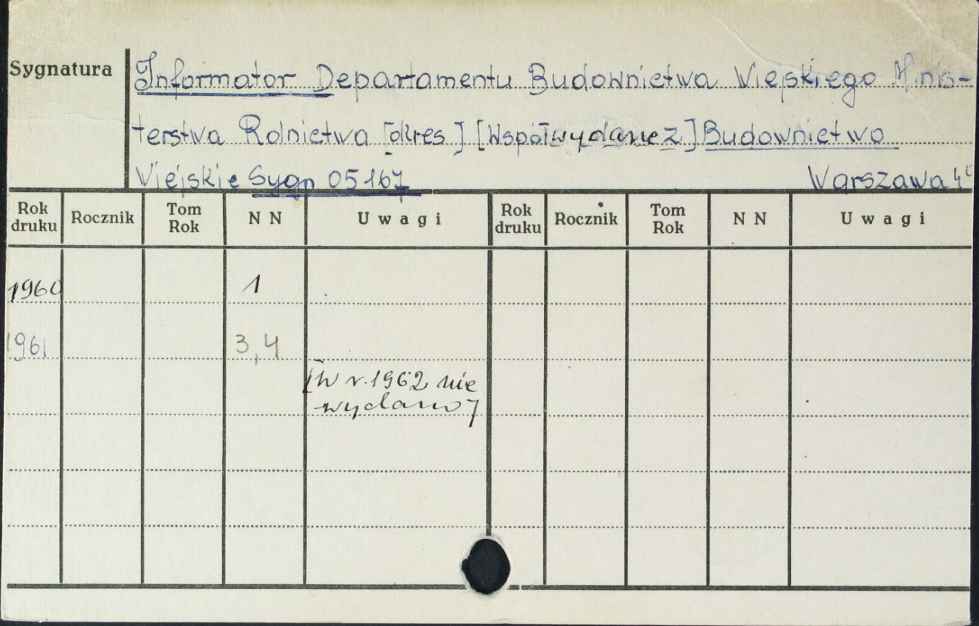 Sygnatura
Informator Departamentu Budownictwa Wiejskiego Minis-
terstwa Rolnictwa [okres] [Współwydane z] Budownictwo
Wiejskie Sygn 05167 Warszawa
Rok druku Rocznik Tom Rok N N Uwagi Rok druku Rocznik Tom Rok N N Uwagi
1960 1
1961 3,4
[W r. 1962 nie
wydano]